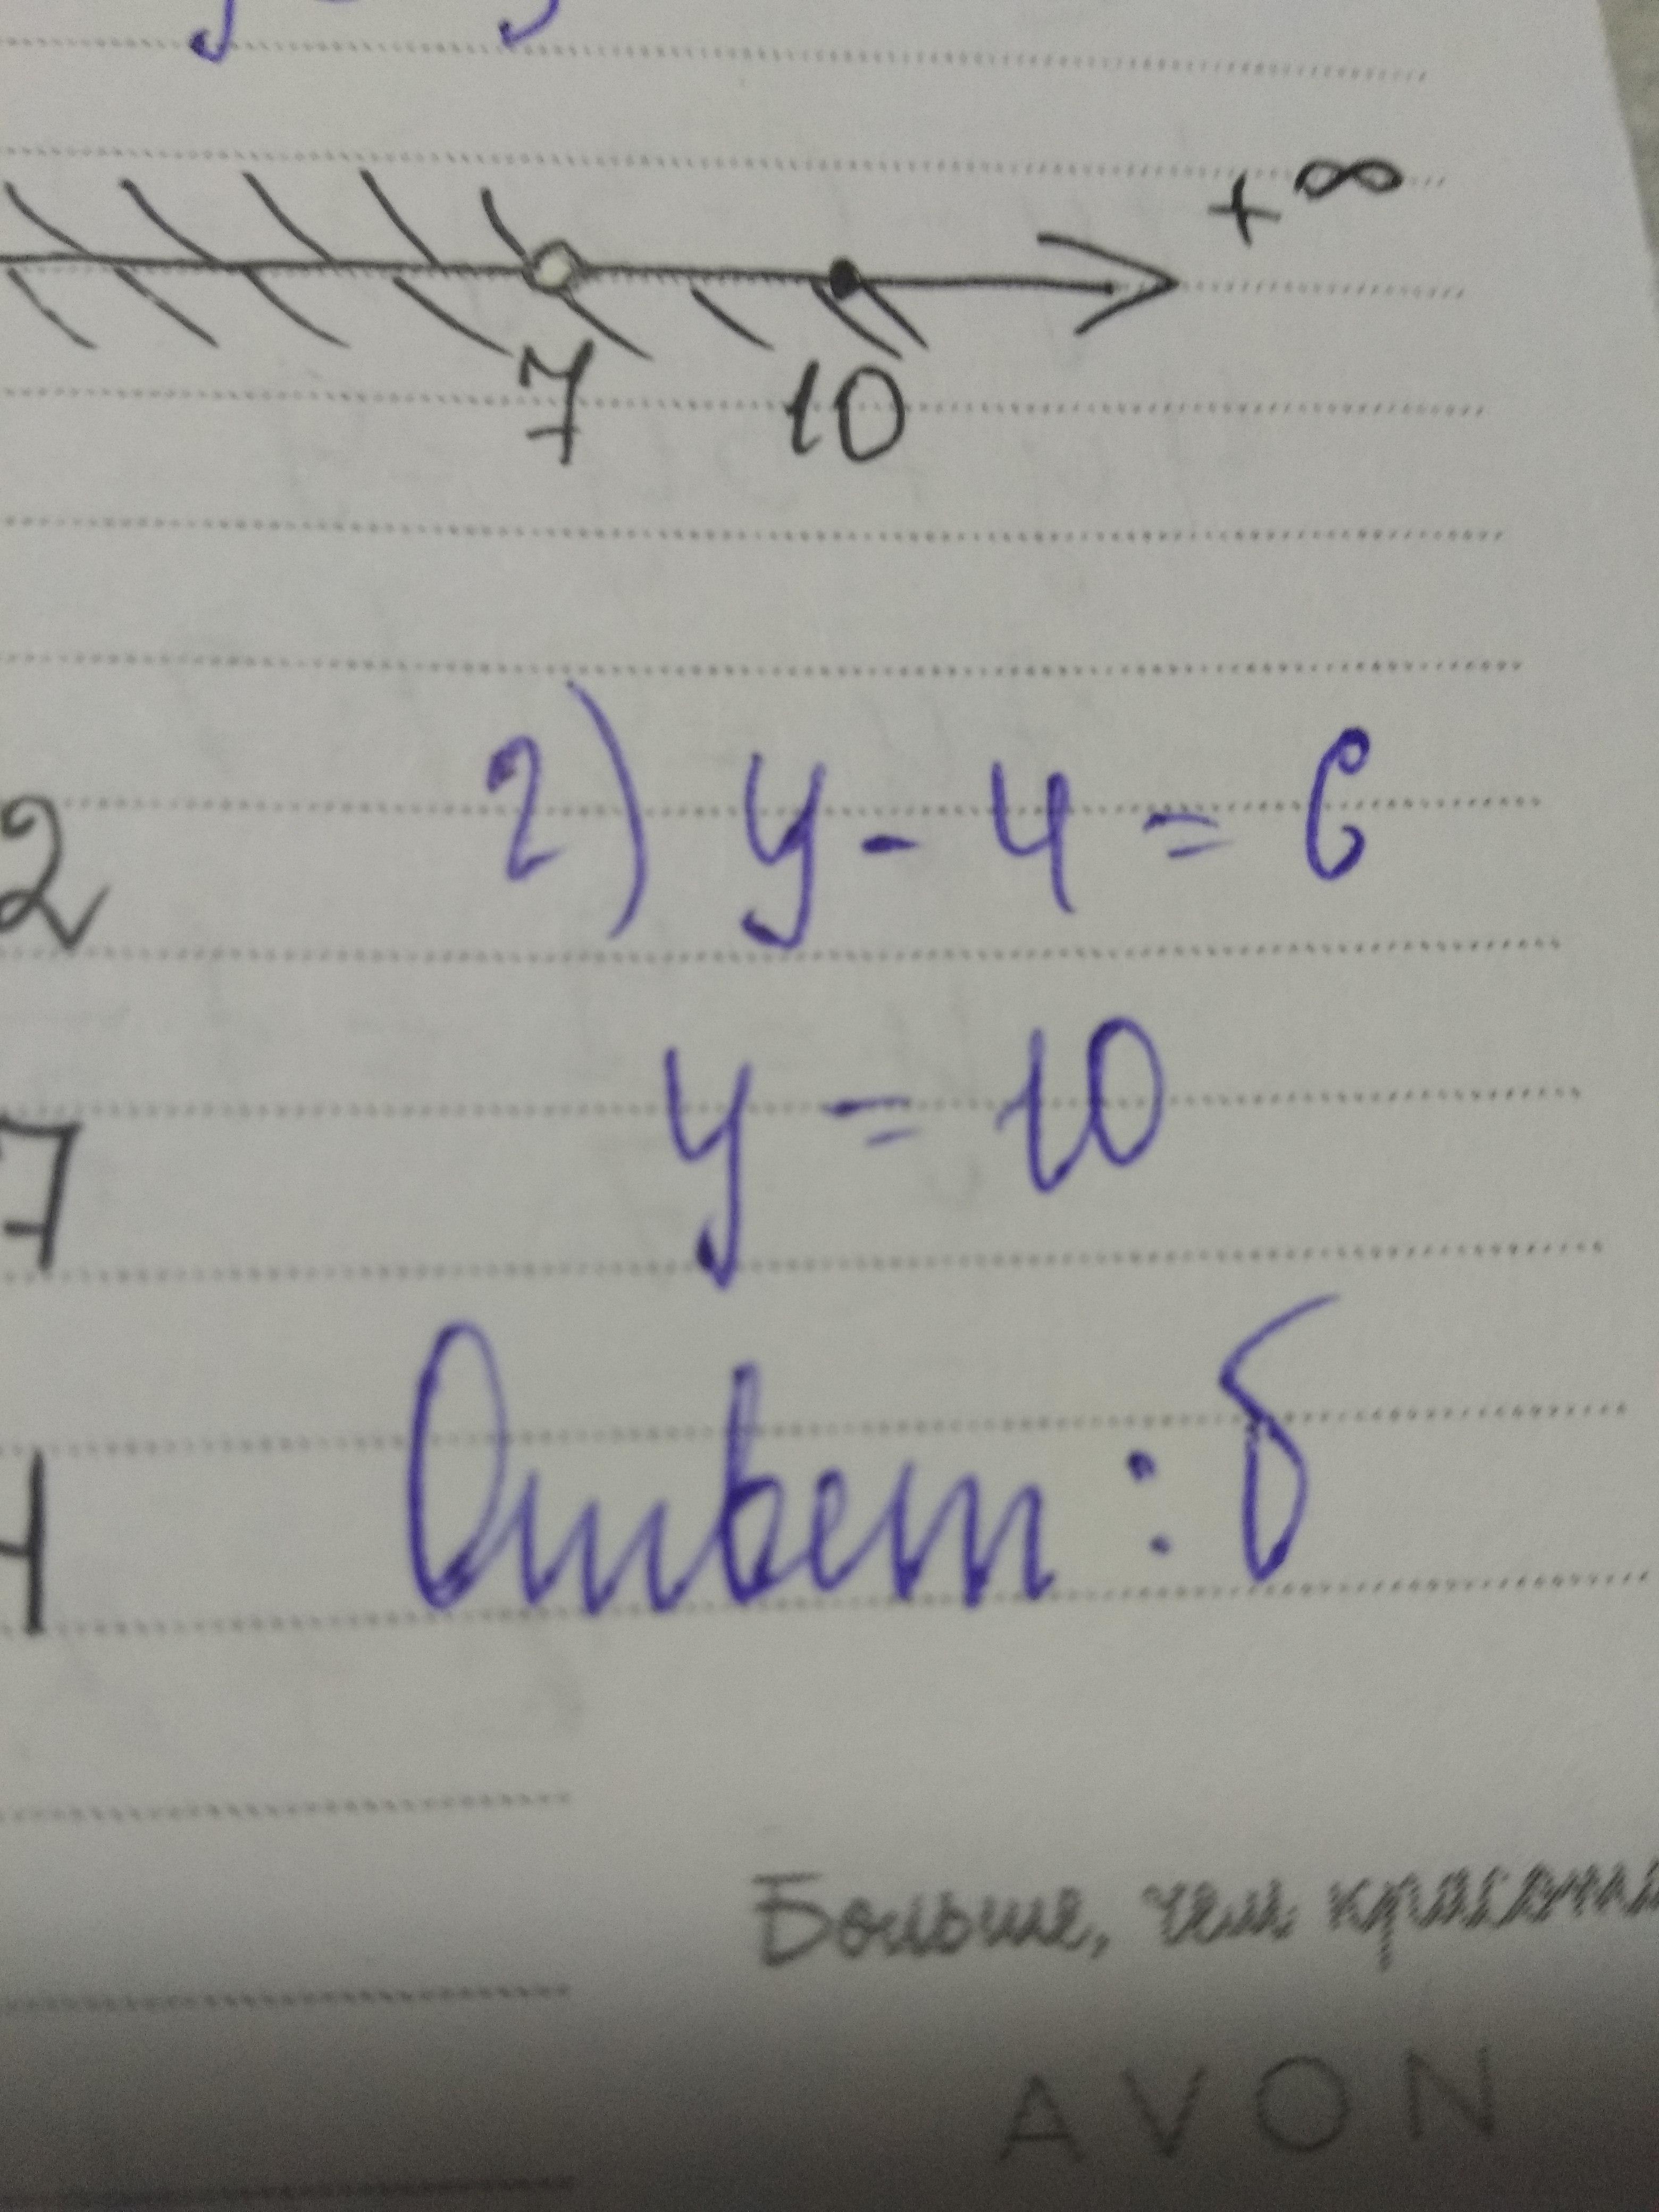 +∞
7 10
2
2) y - 4 = 6
y = 10
7
Ответ: б
4
Больше, чем красота
AVON